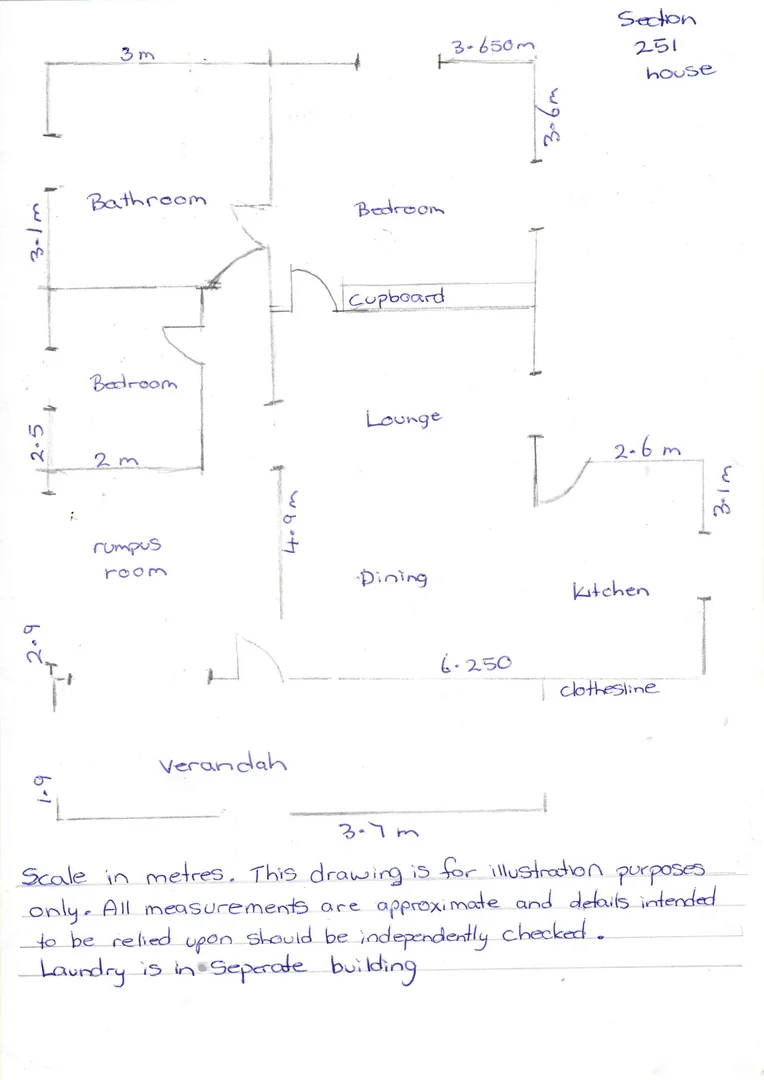 Section
251
house
3 m
3-650m
3-6m
Bathroom
Bedroom
3-1m
Cupboard
Bedroom
Lounge
2.5
2 m
2-6 m
3-1m
4-9m
rumpus
room
Dining
kitchen
2-9
6-250
clothesline
verandah
1-9
3-7 m
Scale in metres. This drawing is for illustration purposes
only. All measurements are approximate and details intended
to be relied upon should be independently checked.
Laundry is in Seperate building